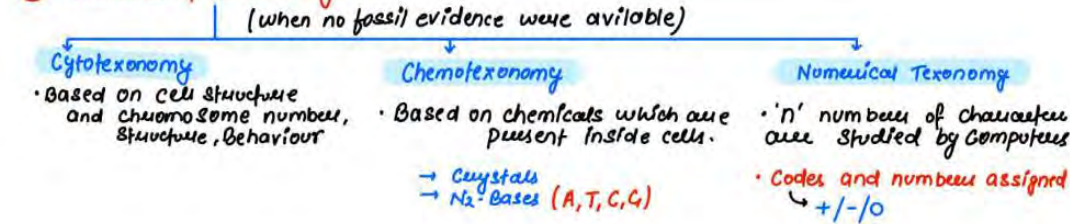 (when no fossil evidence were avilable)
Cytotexonomy
• Based on cell structure
and chromosome number,
structure, Behaviour
Chemotexonomy
• Based on chemicals which are
present inside cells.
→ Crystals
→ N2-Bases (A,T,C,G)
Numerical Texonomy
• 'n' number of character
are studied by Computers
• Codes and number assigned
↳ +/-/0